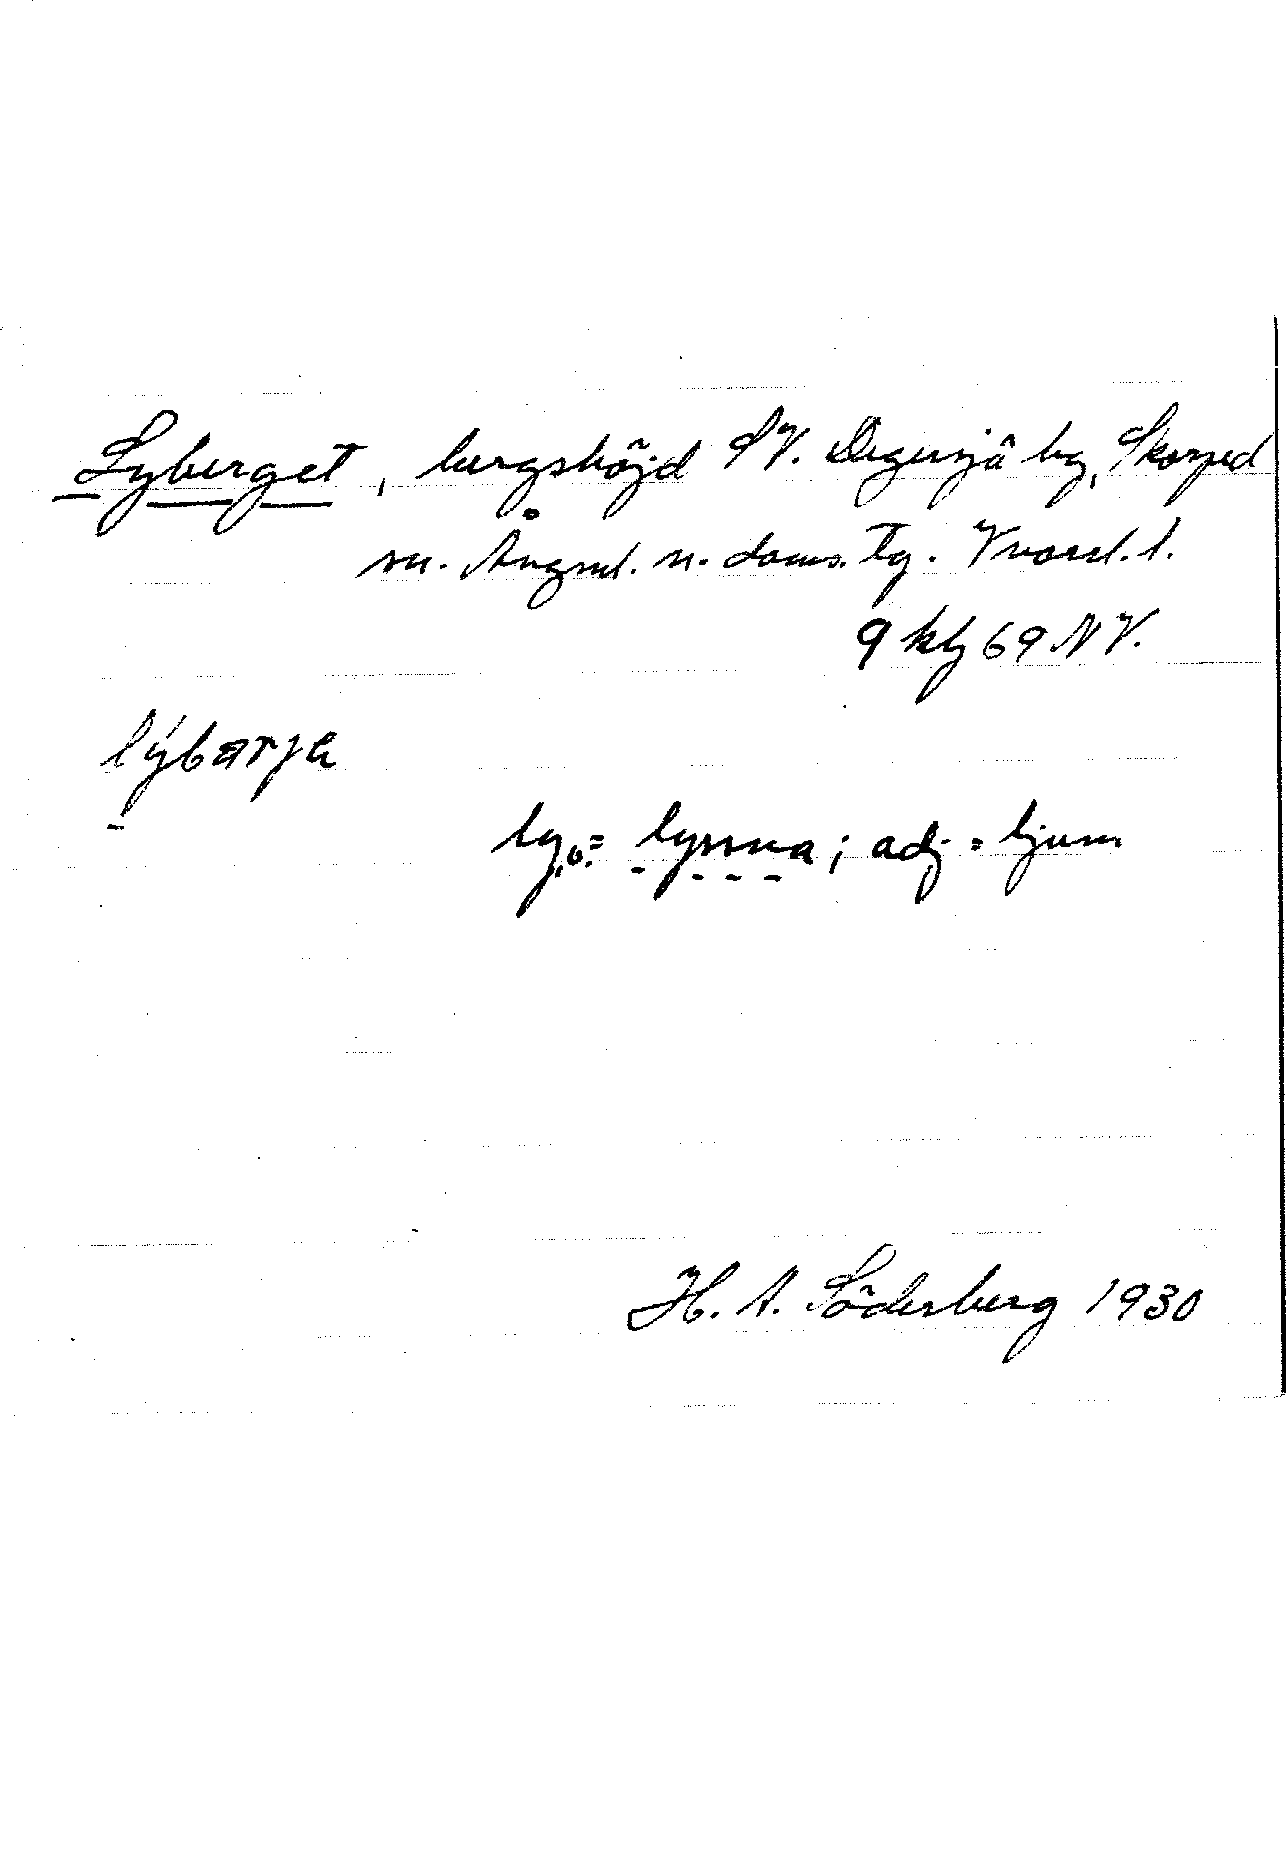 Lyberget, bergshöjd SV. Degersjö by, Skorped
sn. Ångml. n. doms. Tg. Vnorrl. l.
9 kbg 69 NV.
lýbærje
ly, v. = lyssna; adj = ljum
H. A. Söderberg 1930